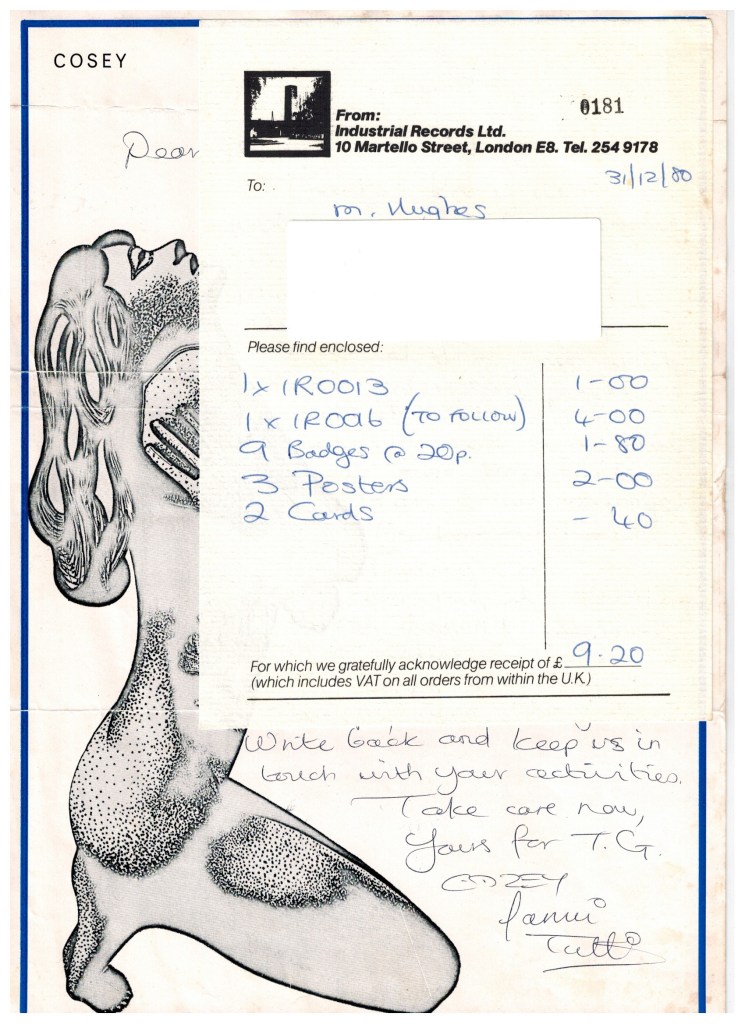 COSEY
Dear
0181
From:
Industrial Records Ltd.
10 Martello Street, London E8. Tel. 254 9178
31/12/80
To:
M. Hughes
Please find enclosed:
1 x IR0013 1-00
1 x IR0016 (TO FOLLOW) 4-00
9 Badges @ 20p. 1-80
3 Posters 2-00
2 Cards - 40
For which we gratefully acknowledge receipt of £ 9.20
(which includes VAT on all orders from within the U.K.)
Write back and keep us in
touch with your activities.
Take care now,
Yours for T.G.
COZEY
Fanni
Tutti